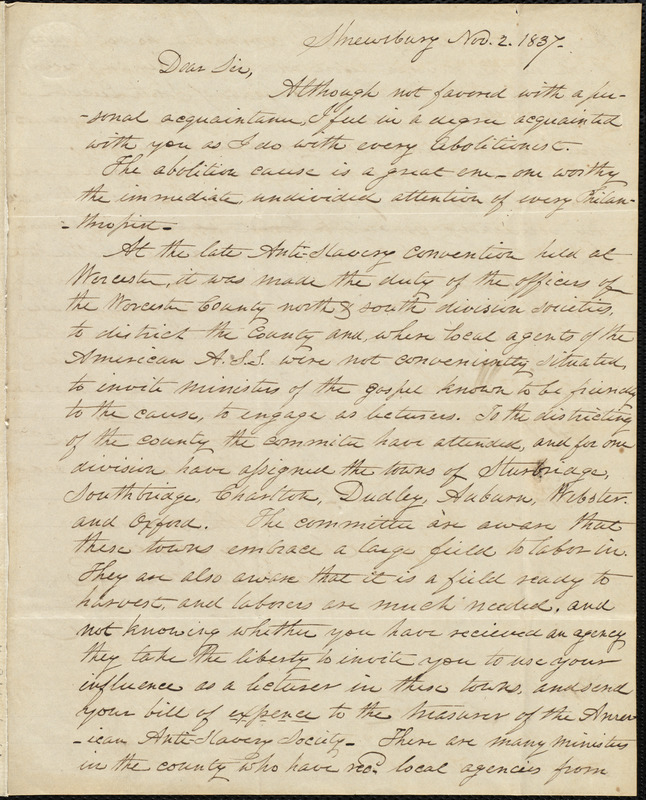 Shrewsbury Nov. 2. 1837.
Dear Sir,
Although not favored with a per-
-sonal acquaintance, I feel in a degree acquainted
with you as I do with every abolitionist.
The abolition cause is a great one - one worthy
the immediate, undivided attention of every Philan-
-thropist -
At the late Anti-Slavery convention held at
Worcester, it was made the duty of the officers of
the Worcester County north & south division societies,
to district the County and, where local agents of the
American A.S.S. were not conveniently situated,
to invite ministers of the gospel known to be friendly
to the cause, to engage as lecturers. To the districting
of the county the committe have attended, and for one
division have assigned the towns of Sturbridge,
Southbridge, Charlton, Dudley, Auburn, Webster.
and Oxford. The committee are aware that
these towns embrace a large field to labor in.
They are also aware that it is a field ready to
harvest, and laborers are much needed, and
not knowing whether you have recieved an agency
they take the liberty to invite you to use your
influence as a lecturer in these towns, and send
your bill of expence to the treasurer of the Amer-
-ican Anti-Slavery Society - There are many ministers
in the county who have recd. local agencies from